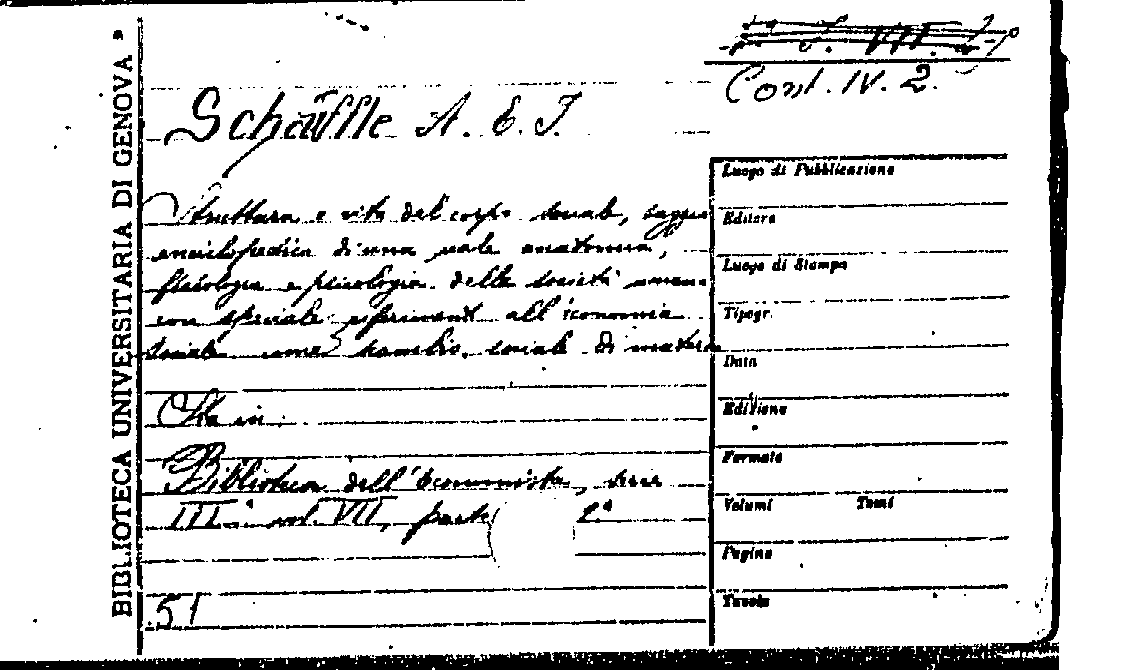 BIBLIOTECA UNIVERSITARIA DI GENOVA
Cons. IV. 2.
Schäffle A. E. F.
Struttura e vita del corpo sociale, saggio
enciclopedico di una reale anatomia,
fisiologia e psicologia della società umana
con speciale riferimento all'economia
sociale come scambio sociale di materia
Sta in:
Biblioteca dell'Economista, serie
III vol. VII, parte 1ª
51
Luogo di Pubblicazione
Editore
Luogo di Stampa
Tipogr.
Data
Edizione
Formato
Volumi Tomi
Pagine
Tavole